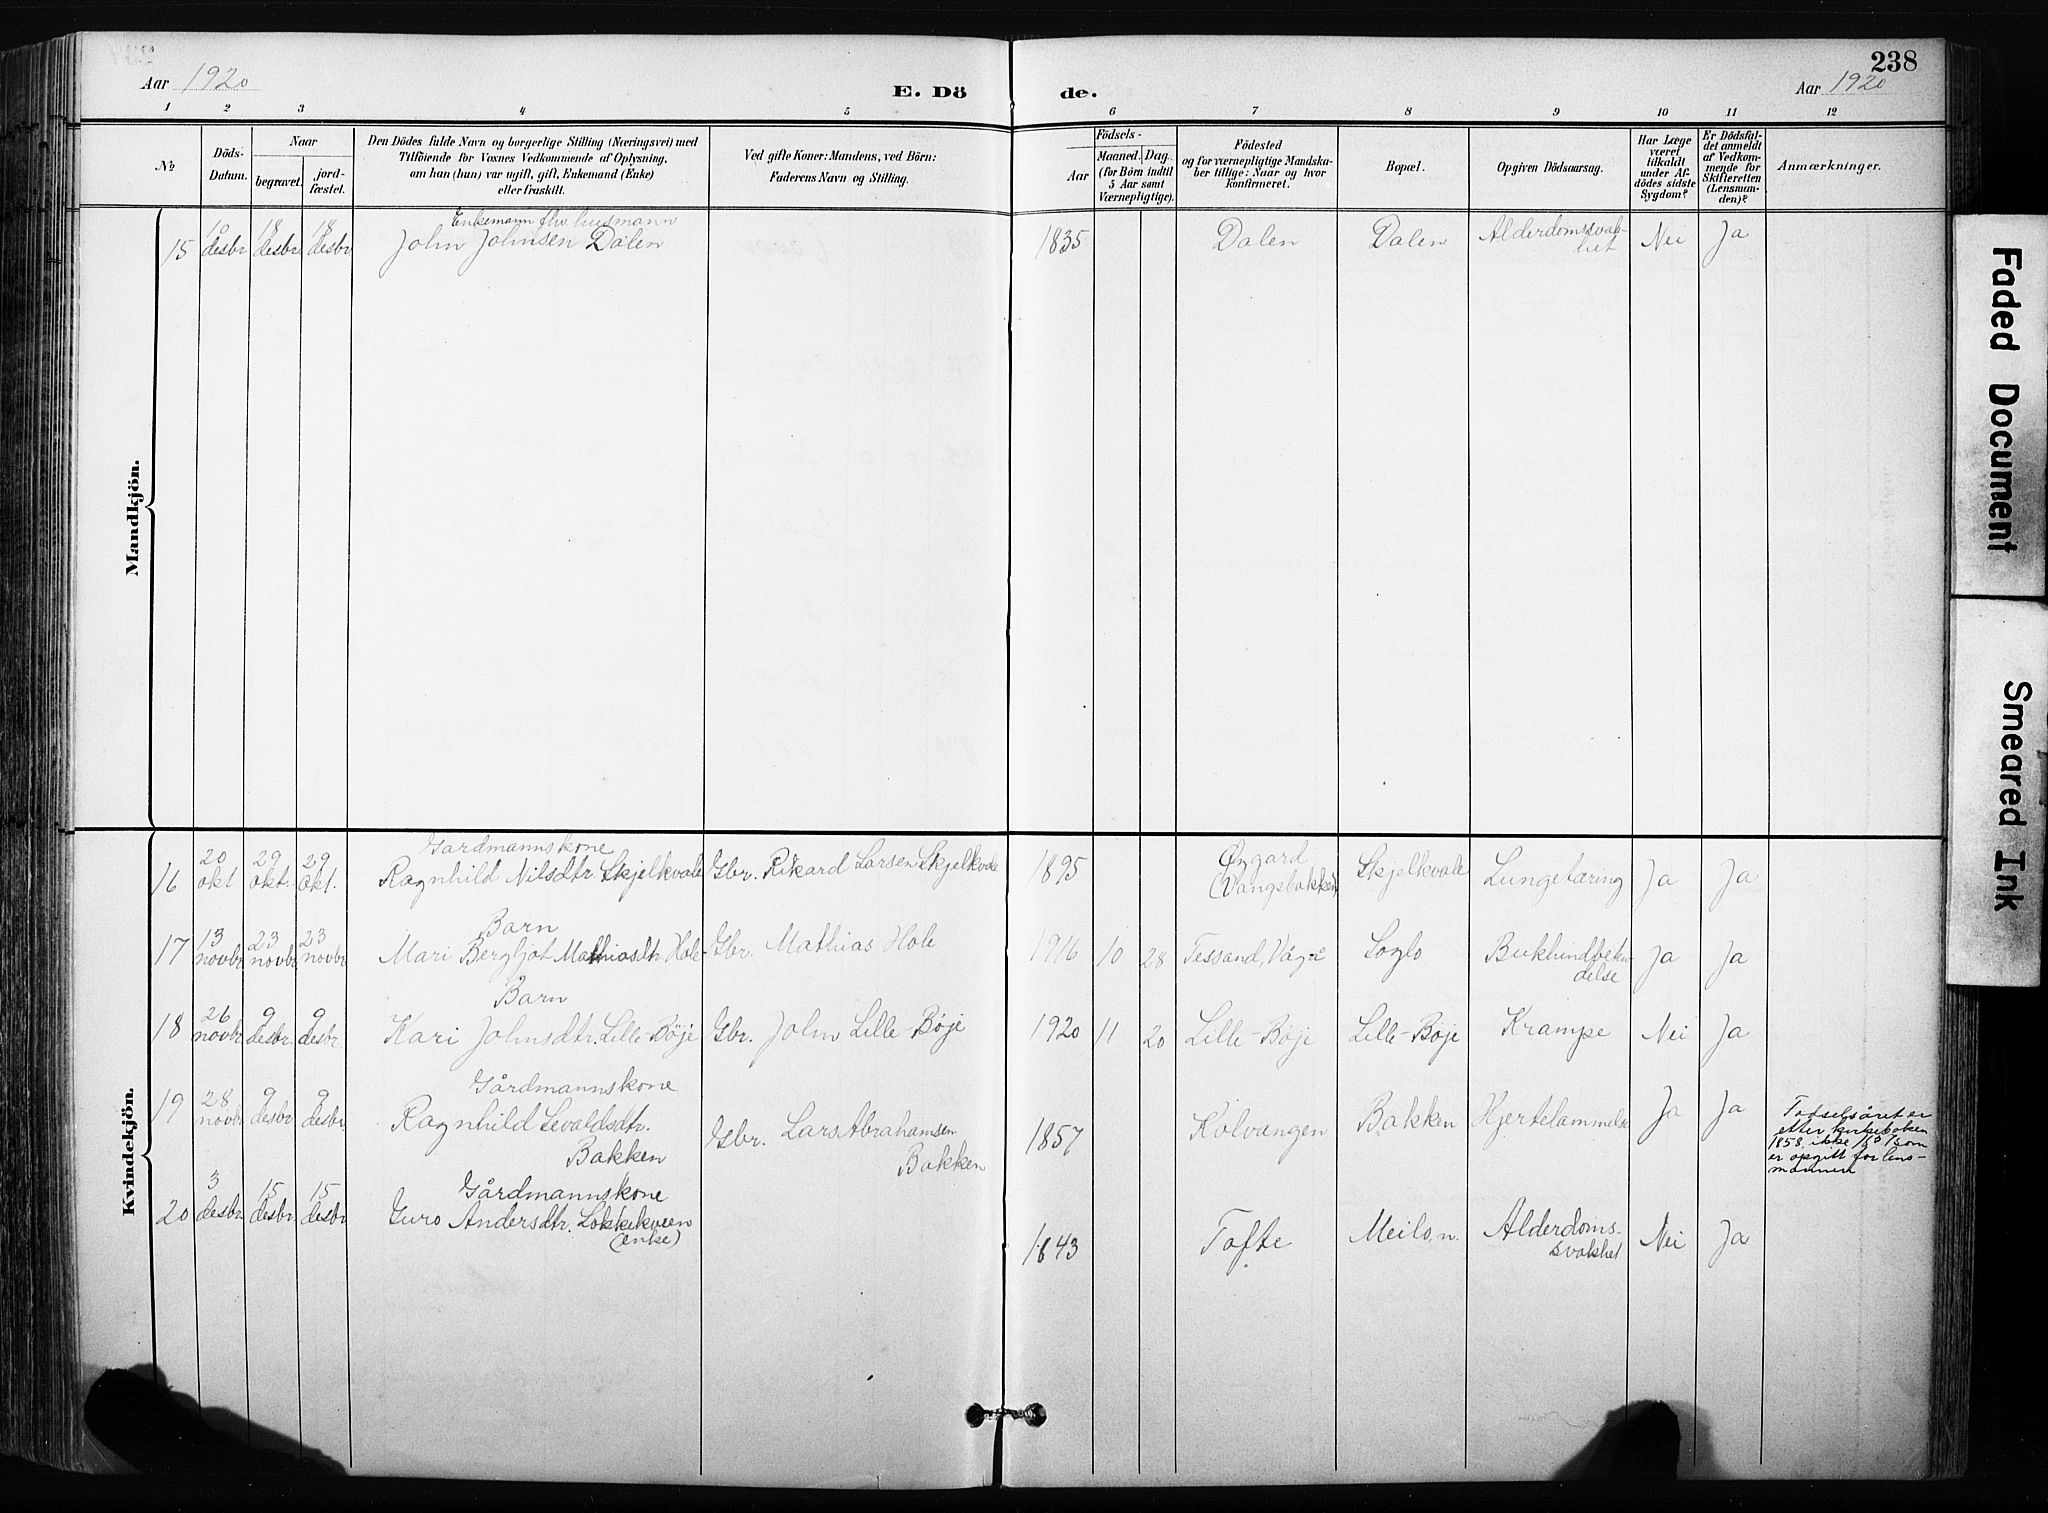 238
Aar 1920
E. Dö de.
Aar 1920
1 2 3 4 5 6 7 8 9 10 11 12
No
Döds-
Datum.
Naar
begravet.
jord-
fæstet.
Den Dödes fulde Navn og borgerlige Stilling (Næringsvei) med
Tilföiende for Voxnes Vedkommende af Oplysning,
om han (hun) var ugift, gift, Enkemand (Enke)
eller fraskilt.
Ved gifte Koner: Mandens, ved Börn:
Faderens Navn og Stilling.
Födsels-
Aar
Maaned. Dag.
(for Börn indtil
5 Aar samt
Værnepligtige).
Födested
og for værnepligtige Mandska-
ber tillige: Naar og hvor
konfirmeret.
Bopæl.
Opgiven Dödsaarsag.
Har Læge
været
tilkaldt
under Af-
dödes sidste
Sygdom?
Er Dödsfal-
det anmeldt
af Vedkom-
mende for
Skifteretten
(Lensman-
den)?
Anmærkninger.
Mandkjön.
Enkemann flv. husmann
15 desbr 18 desbr 18 desbr John Johnsen Dalen 1835 Dalen Dalen Alderdomssvak-
het Nei Ja
Kvindekjön.
Gardmannskone
16 20 okt 29 okt. 29 okt. Ragnhild Nilsdtr Skjelkvale Gbr. Rikard Larsen Skjelkvale 1895 Øygard
(Vangsbakken) Skjelkvale Lungetæring Ja Ja
Barn
17 13 novbr 23 novbr 23 novbr Mari Bergljot Mathiasdtr Hole Gbr. Mathias Hole 1916 10 28 Tessand, Vågå Soglo Bukhindbeten-
delse Ja Ja
Barn
18 26 novbr 9 desbr. 9 desbr. Kari Johnsdtr. Lille-Bøje Gbr. John Lille-Bøje 1920 11 20 Lille-Bøje Lille-Bøje Krampe Nei Ja
Gårdmannskone
19 28 novbr 9 desbr. 9 desbr. Ragnhild Sevaldsdtr.
Bakken Gbr. Lars Abrahamsen
Bakken 1857 Kolvangen Bakken Hjertelammelse Ja Ja
Fødselsåret er
etter kirkeboken
1858, ikke som
er opgitt for lens-
mannen
Gårdmannskone
20 3 desbr. 15 desbr 15 desbr Guro Andersdtr. Løkkikveen
(enke) 1843 Tofte Meilo, n. Alderdoms-
svakhet Nei Ja
Faded Document
Smeared Ink